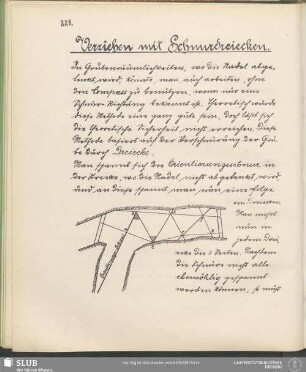 228.
Verziehen mit Schnurdreiecken.
In Grubenräumlichkeiten, wo die Nadel abge-
lenkt wird, kann man auch arbeiten, ohne
den Compass zu benützen, wenn nur eine
Schnur Richtung bekannt ist. Theoretisch würde
diese Methode eine ganz gute sein, doch läßt sich
die theoretische Sicherheit nicht erreichen. Diese
Methode basiert auf der Verschnürung der Gru-
be durch Dreiecke.
Man spannt sich die Orientierungsschnur in
der Strecke, wo die Nadel nicht abgelenkt wird
und an diese spannt man nun eine Folge
von Dreiecken.
Man misst
nun in
jedem Drei-
ecke die 3 Seiten. Nachdem
die Schnüre nicht alle
ebensöhlig gespannt
werden können, so muß
Orientierungsschnur
SLUB
Wir führen Wissen.